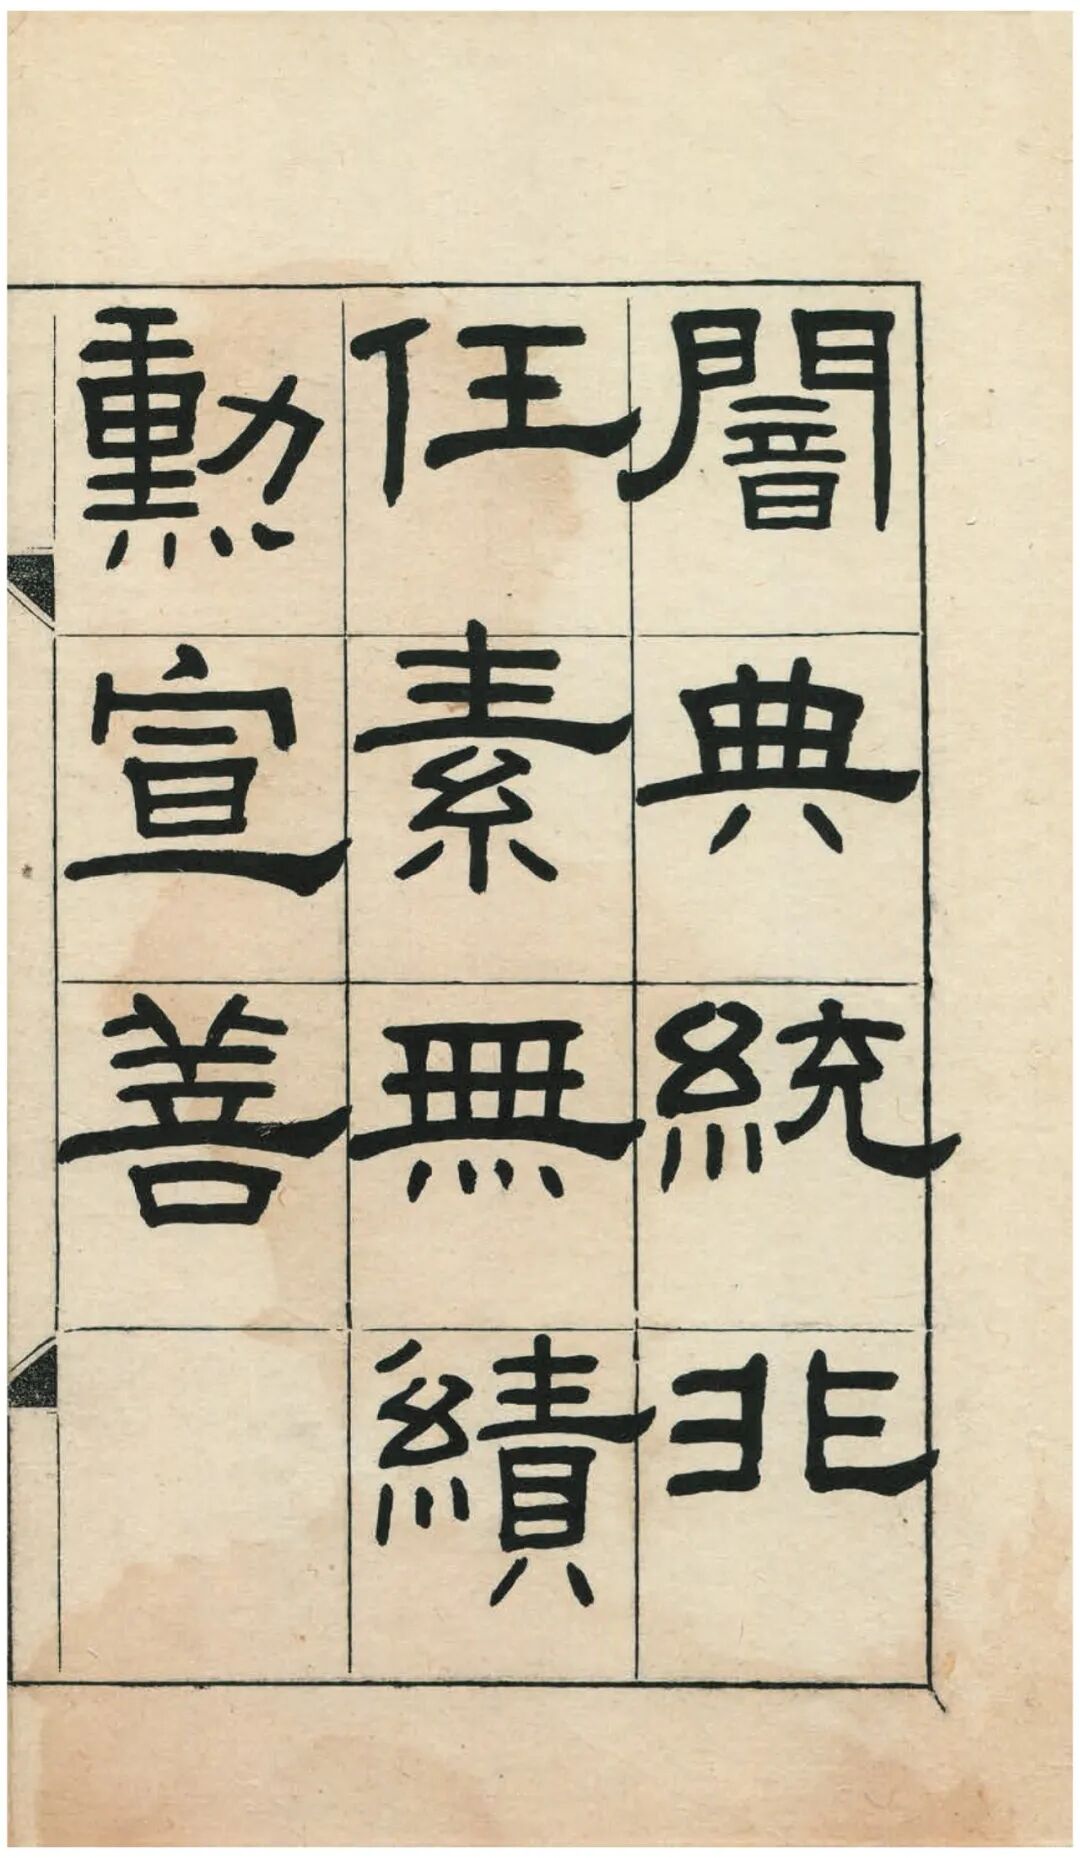 闇典統非
任素無績
勲宣善